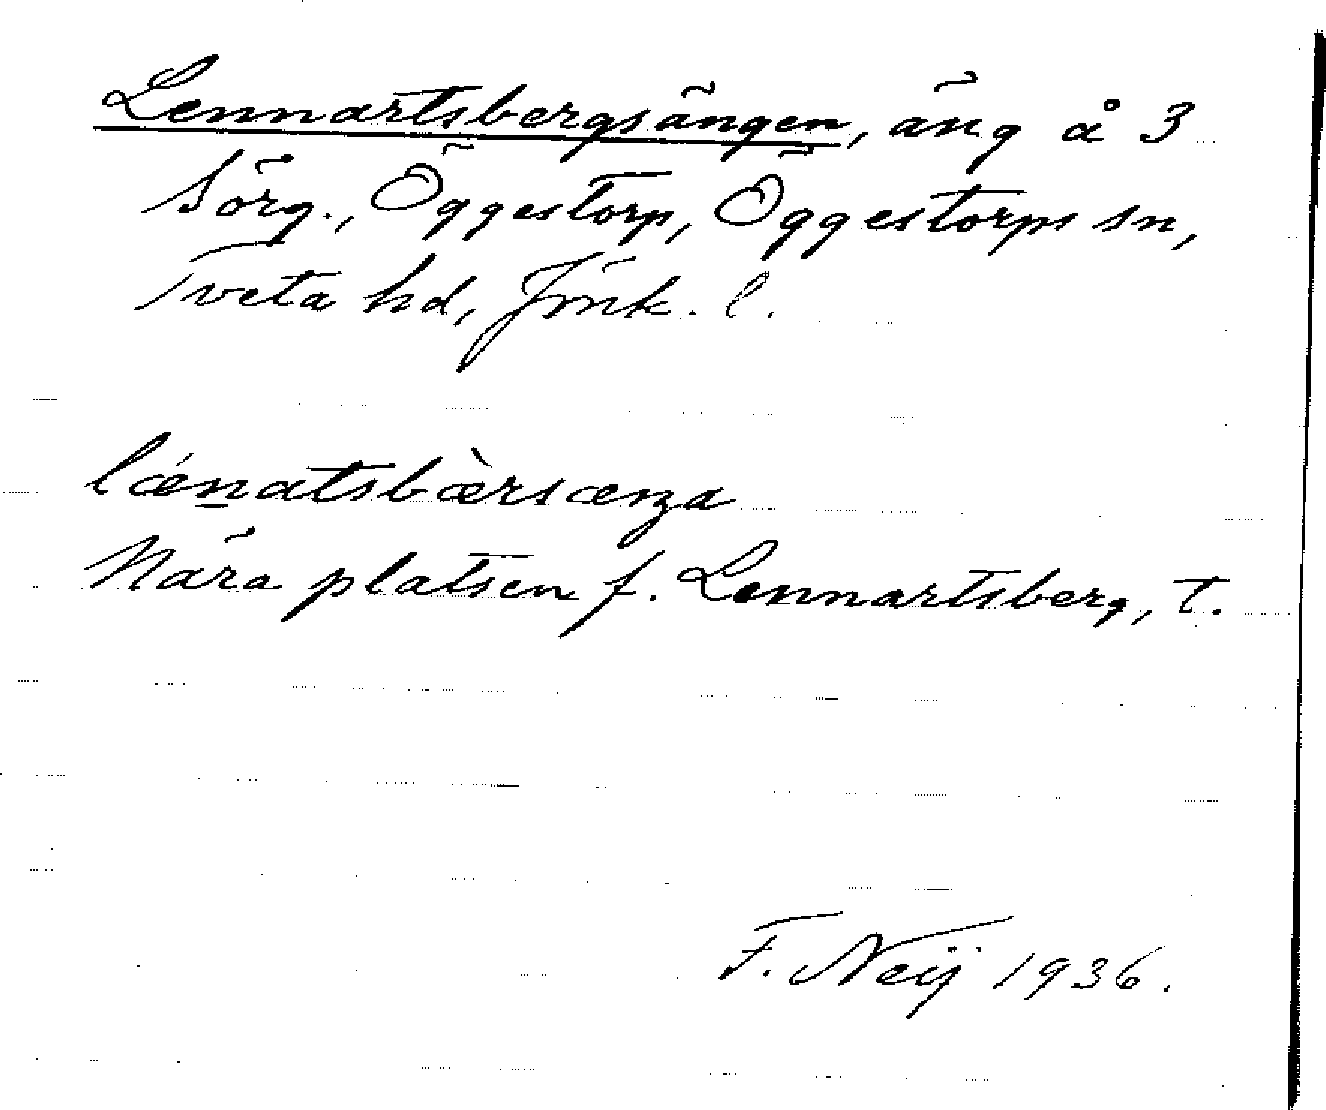 Lennartsbergsängen, äng å 3
Sörg., Öggestorp, Öggestorps sn,
Tveta hd, Jönk. l.
lǽnatsbæ̀rsæŋa
Nära platsen f. Lennartsberg, t.
F. Neij 1936.